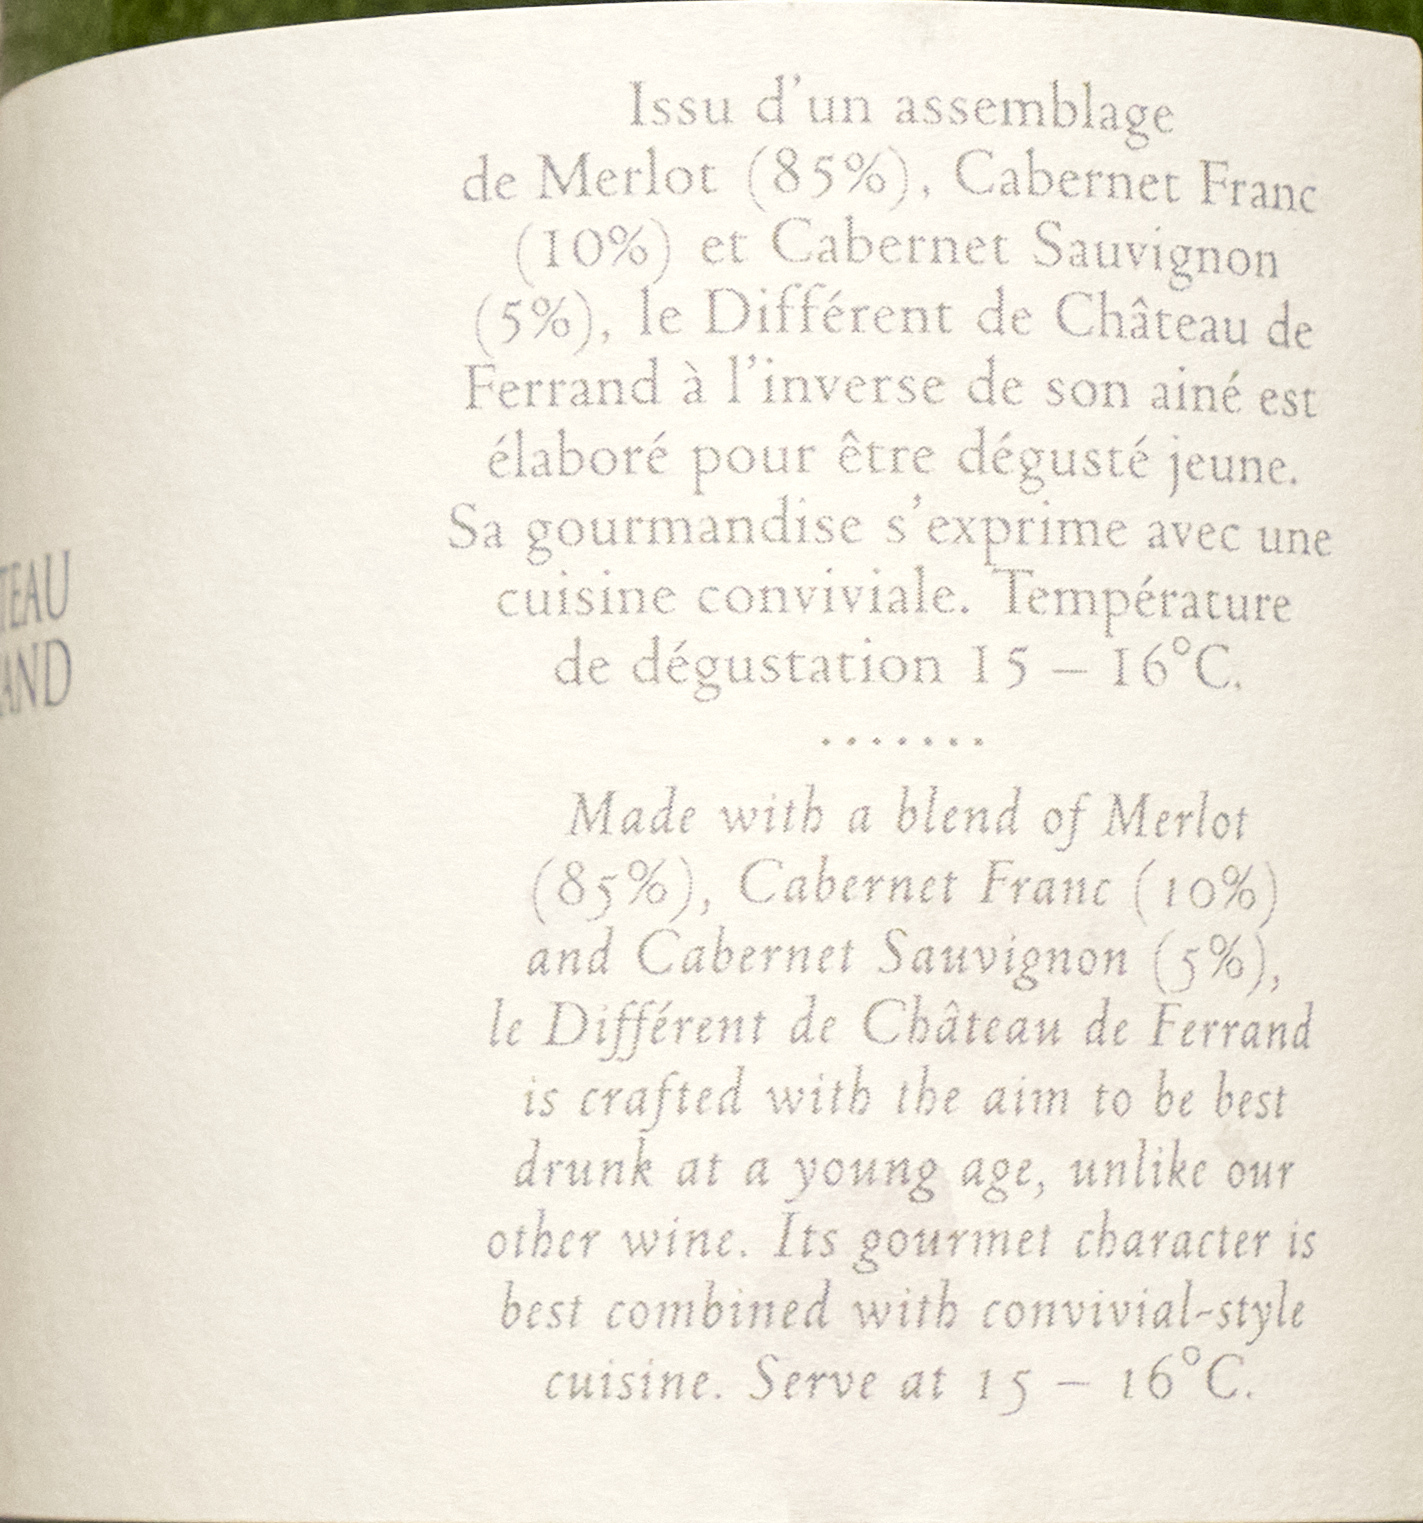 Issu d'un assemblage
de Merlot (85%), Cabernet Franc
(10%) et Cabernet Sauvignon
(5%), le Différent de Château de
Ferrand à l'inverse de son ainé est
élaboré pour être dégusté jeune.
Sa gourmandise s'exprime avec une
cuisine conviviale. Température
de dégustation 15 – 16°C.
.......
Made with a blend of Merlot
(85%), Cabernet Franc (10%)
and Cabernet Sauvignon (5%),
le Différent de Château de Ferrand
is crafted with the aim to be best
drunk at a young age, unlike our
other wine. Its gourmet character is
best combined with convivial-style
cuisine. Serve at 15 – 16°C.
TEAU
AND